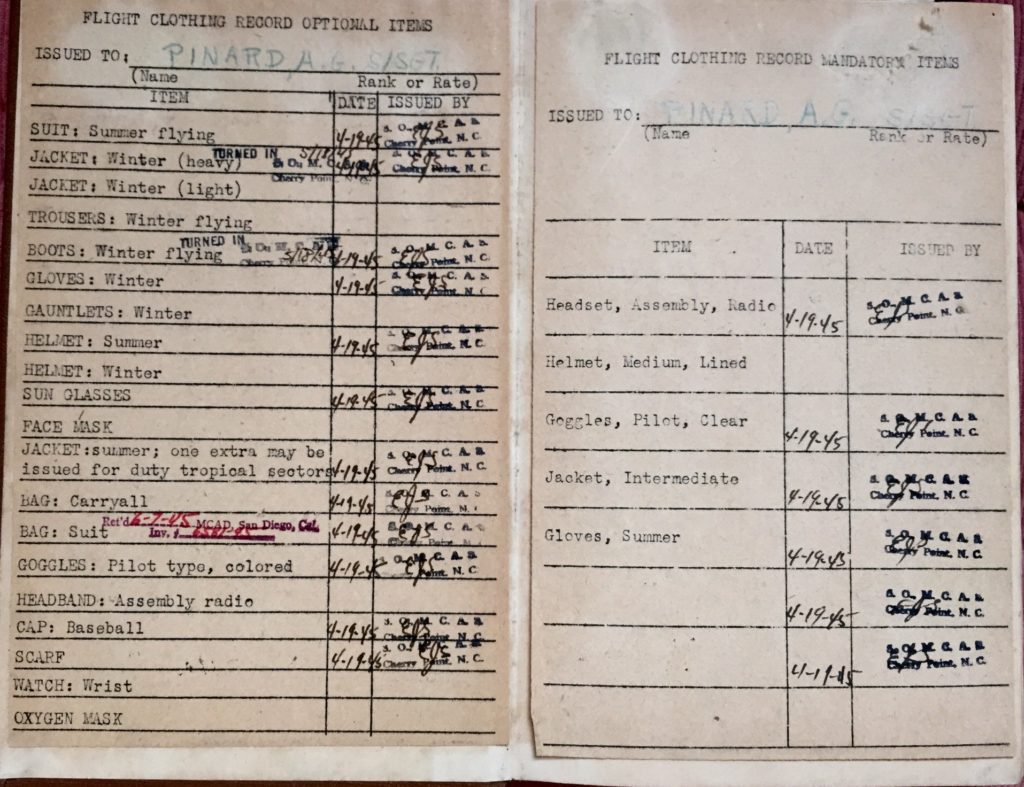 FLIGHT CLOTHING RECORD OPTIONAL ITEMS
ISSUED TO: PINARD, A.G. S/SGT.
(Name Rank or Rate)
ITEM DATE ISSUED BY
SUIT: Summer flying 4-19-45 S. O., M. C. A. S. Cherry Point, N. C.
JACKET: Winter (heavy) TURNED IN 4-19-45 S. O., M. C. A. S. Cherry Point, N. C.
JACKET: Winter (light)
TROUSERS: Winter flying
BOOTS: Winter flying TURNED IN 4-19-45 S. O., M. C. A. S. Cherry Point, N. C.
GLOVES: Winter 4-19-45 S. O., M. C. A. S. Cherry Point, N. C.
GAUNTLETS: Winter
HELMET: Summer 4-19-45 S. O., M. C. A. S. Cherry Point, N. C.
HELMET: Winter
SUN GLASSES 4-19-45 S. O., M. C. A. S. Cherry Point, N. C.
FACE MASK
JACKET:summer; one extra may be
issued for duty tropical sectors 4-19-45 S. O., M. C. A. S. Cherry Point, N. C.
BAG: Carryall 4-19-45 S. O., M. C. A. S. Cherry Point, N. C.
BAG: Suit Ret'd 6-7-45 MCAD, San Diego, Cal. Inv. # 4-19-45 S. O., M. C. A. S.
GOGGLES: Pilot type, colored 4-19-45 S. O., M. C. A. S. Cherry Point, N. C.
HEADBAND: Assembly radio
CAP: Baseball 4-19-45 S. O., M. C. A. S. Cherry Point, N. C.
SCARF 4-19-45 S. O., M. C. A. S. Cherry Point, N. C.
WATCH: Wrist
OXYGEN MASK
FLIGHT CLOTHING RECORD MANDATORY ITEMS
ISSUED TO: PINARD, A.G. S/SGT.
(Name Rank or Rate)
ITEM DATE ISSUED BY
Headset, Assembly, Radio 4-19-45 S. O., M. C. A. S. Cherry Point, N. C.
Helmet, Medium, Lined
Goggles, Pilot, Clear 4-19-45 S. O., M. C. A. S. Cherry Point, N. C.
Jacket, Intermediate 4-19-45 S. O., M. C. A. S. Cherry Point, N. C.
Gloves, Summer 4-19-45 S. O., M. C. A. S. Cherry Point, N. C.
4-19-45 S. O., M. C. A. S. Cherry Point, N. C.
4-19-45 S. O., M. C. A. S. Cherry Point, N. C.